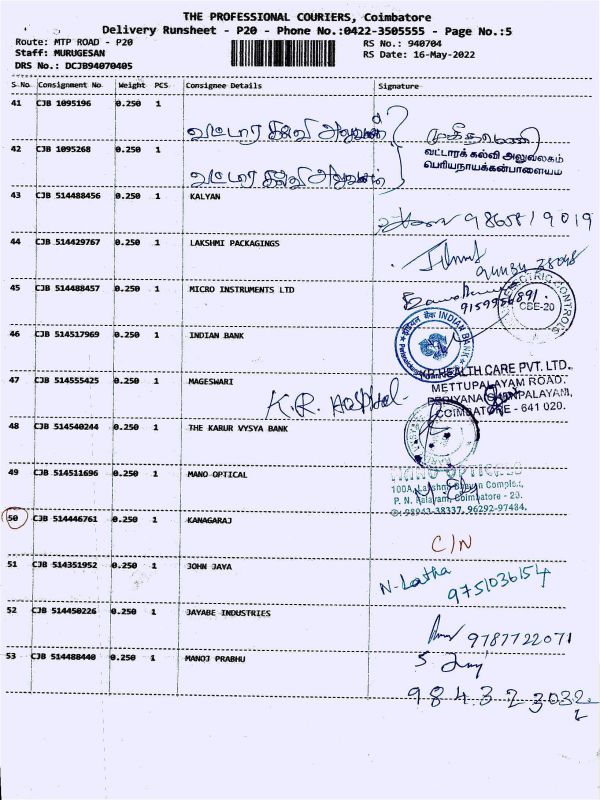 THE PROFESSIONAL COURIERS, Coimbatore
Delivery Runsheet - P20 - Phone No.:0422-3505555 - Page No.:5
Route: MTP ROAD - P20 RS No.: 940704
Staff: MURUGESAN RS Date: 16-May-2022
DRS No.: DCJB94070405
S No Consignment No Weight PCS Consignee Details Signature
41 CJB 1095196 0.250 1
வட்டார கல்வி அலுவலகம்
42 CJB 1095268 0.250 1
வட்டாரக் கல்வி அலுவலகம்
பெரியநாயக்கன்பாளையம்
வட்டார கல்வி அலுவலகம்
43 CJB 514488456 0.250 1 KALYAN
98658 19019
44 CJB 514429767 0.250 1 LAKSHMI PACKAGINGS
45 CJB 514488457 0.250 1 MICRO INSTRUMENTS LTD
9159956891
ELECTRIC CONTROLS
CBE-20
46 CJB 514517969 0.250 1 INDIAN BANK
इंडियन बैंक INDIAN BANK
47 CJB 514555425 0.250 1 MAGESWARI
K.R. Hospital
HEALTH CARE PVT. LTD.,
METTUPALAYAM ROAD,
COIMBATORE - 641 020.
48 CJB 514540244 0.250 1 THE KARUR VYSYA BANK
49 CJB 514511696 0.250 1 MANO OPTICAL
100A, Lakshmi Complex,
P. N. Palayam, Coimbatore - 20.
98943-38337, 96292-97484.
50 CJB 514446761 0.250 1 KANAGARAJ
C/N
51 CJB 514351952 0.250 1 JOHN JAYA
N-Latha
9751036154
52 CJB 514450226 0.250 1 JAYABE INDUSTRIES
9787722071
53 CJB 514488440 0.250 1 MANOJ PRABHU
984323032